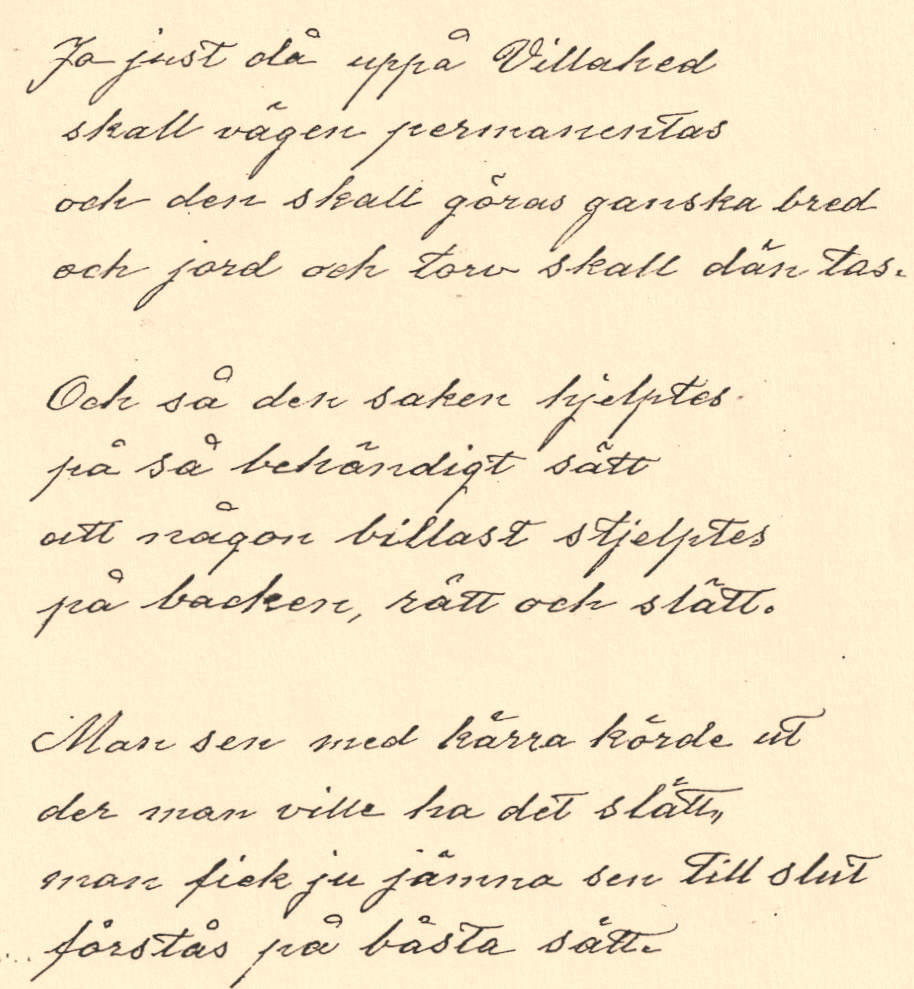 Ja just då uppå Villahed
skall vägen permanentas
och den skall göras ganska bred
och jord och torv skall dän tas.
Och så den saken hjelptes
på så behändigt sätt
att någon billast stjelptes
på backen, rätt och slätt.
Man sen med kärra körde ut
der man ville ha det slätt,
man fick ju jämna sen till slut
förstås på bästa sätt.